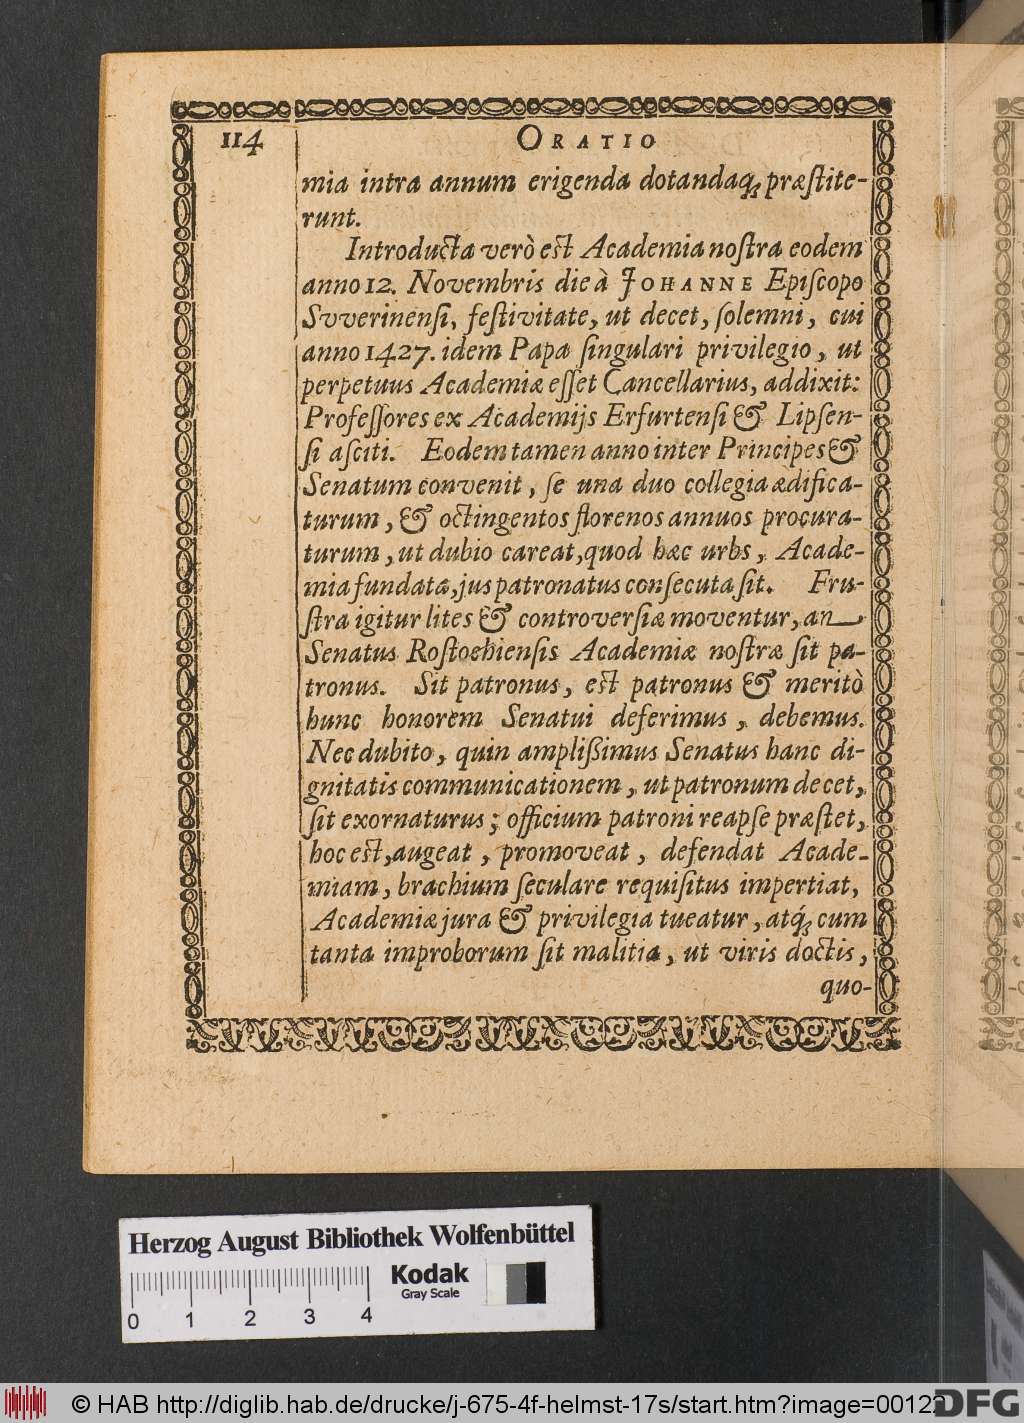 114
ORATIO
mia intra annum erigenda dotandaq́ꝫ præſtite-
runt.
Introducta verò est Academia noſtra eodem
anno 12. Novembris die à JOHANNE Epiſcopo
Svverinenſi, feſtivitate, ut decet, ſolemni, cui
anno 1427. idem Papa ſingulari privilegio, ut
perpetuus Academiæ eſſet Cancellarius, addixit:
Profeſſores ex Academijs Erfurtenſi & Lipſen-
ſi aſciti. Eodem tamen anno inter Principes &
Senatum convenit, ſe una duo collegia ædifica-
turum, & octingentos florenos annuos procura-
turum, ut dubio careat, quod hæc urbs, Acade-
mia fundata, jus patronatus conſecuta ſit. Fru-
ſtra igitur lites & controverſiæ moventur, an
Senatus Roſtochienſis Academiæ noſtræ ſit pa-
tronus. Sit patronus, est patronus & meritò
hunc honorem Senatui deferimus, debemus.
Nec dubito, quin ampliſsimus Senatus hanc di-
gnitatis communicationem, ut patronum decet,
ſit exornaturus; officium patroni reapſe præſtet,
hoc est, augeat, promoveat, defendat Acade-
miam, brachium ſeculare requiſitus impertiat,
Academiæ jura & privilegia tueatur, atq́ꝫ cum
tanta improborum ſit malitia, ut viris doctis,
quo-
Herzog August Bibliothek Wolfenbüttel
Kodak
Gray Scale
0 1 2 3 4
© HAB http://diglib.hab.de/drucke/j-675-4f-helmst-17s/start.htm?image=00122
DFG